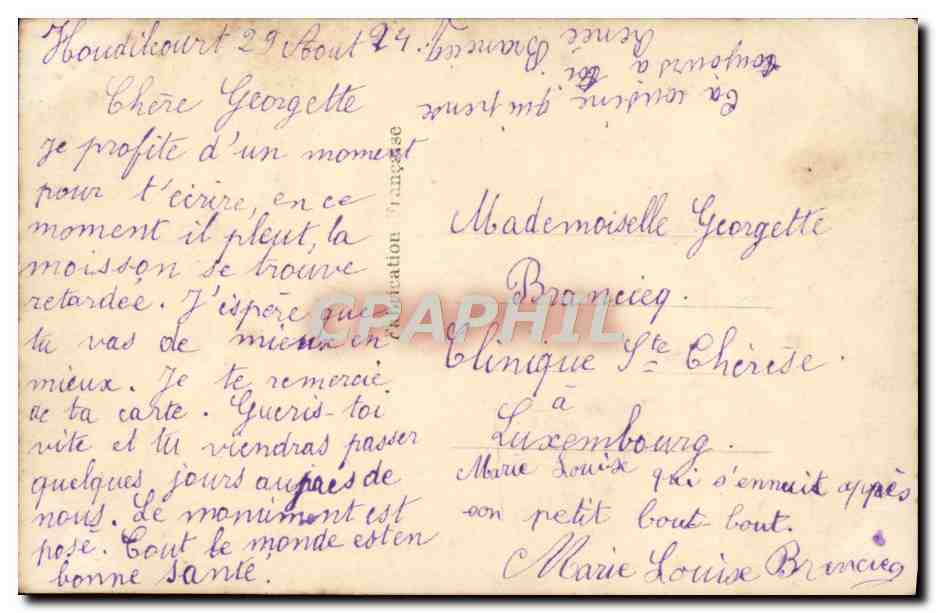 Houdilcourt 29 Aout 24.
Chère Georgette
je profite d'un moment
pour t'écrire, en ce
moment il pleut, la
moisson se trouve
retardée. J'espère que
tu vas de mieux en
mieux. Je te remercie
de ta carte. Gueris-toi
vite et tu viendras passer
quelques jours auprès de
nous. Le monument est
posé. Tout le monde est en
bonne santé.
Ta cousine qui pense
toujours à toi
Renée Brancicq
Fabrication Française
Mademoiselle Georgette
Brancicq.
Clinique Ste Thérèse.
à
Luxembourg.
Marie Louise qui s'ennuit appès
son petit bout-bout.
Marie Louise Brancicq
CPAPHIL